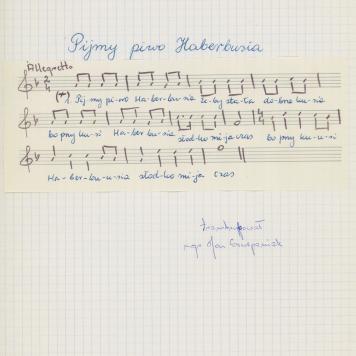 Pijmy piwo Haberbusia
Allegretto
1. Pij-my pi-wo Ha-ber-bu-sia że-by sta-ła do-bra bu-sia
bo przy bu-si Ha-ber bu-sia słod-ko mi-ja czas bo przy bu-u-si
Ha-ber-bu-u-sia słod-ko mi-ja czas
mgr Jan